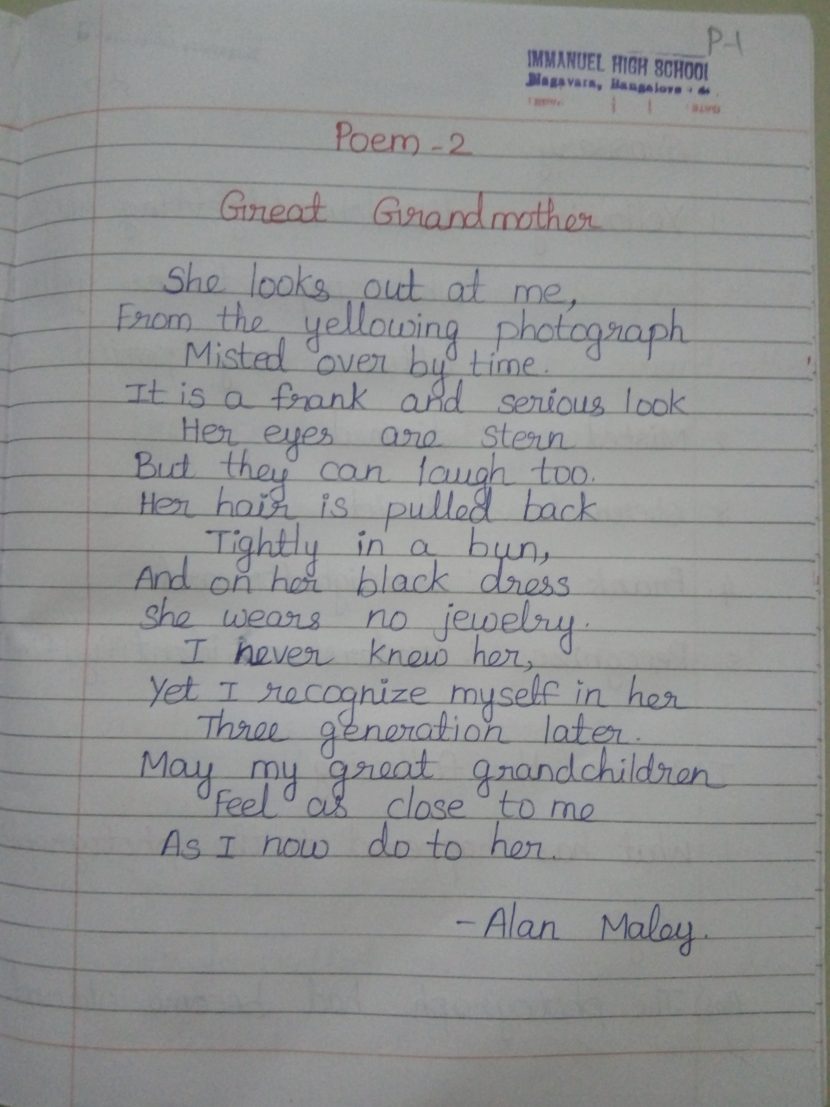 P-1
IMMANUEL HIGH SCHOOL
Nagavara, Bangalore
Poem - 2
Great Grandmother
She looks out at me,
From the yellowing photograph
Misted over by time.
It is a frank and serious look
Her eyes are stern
But they can laugh too.
Her hair is pulled back
Tightly in a bun,
And on her black dress
She wears no jewelry.
I never knew her,
Yet I recognize myself in her
Three generation later.
May my great grandchildren
Feel as close to me
As I now do to her.
- Alan Maley.